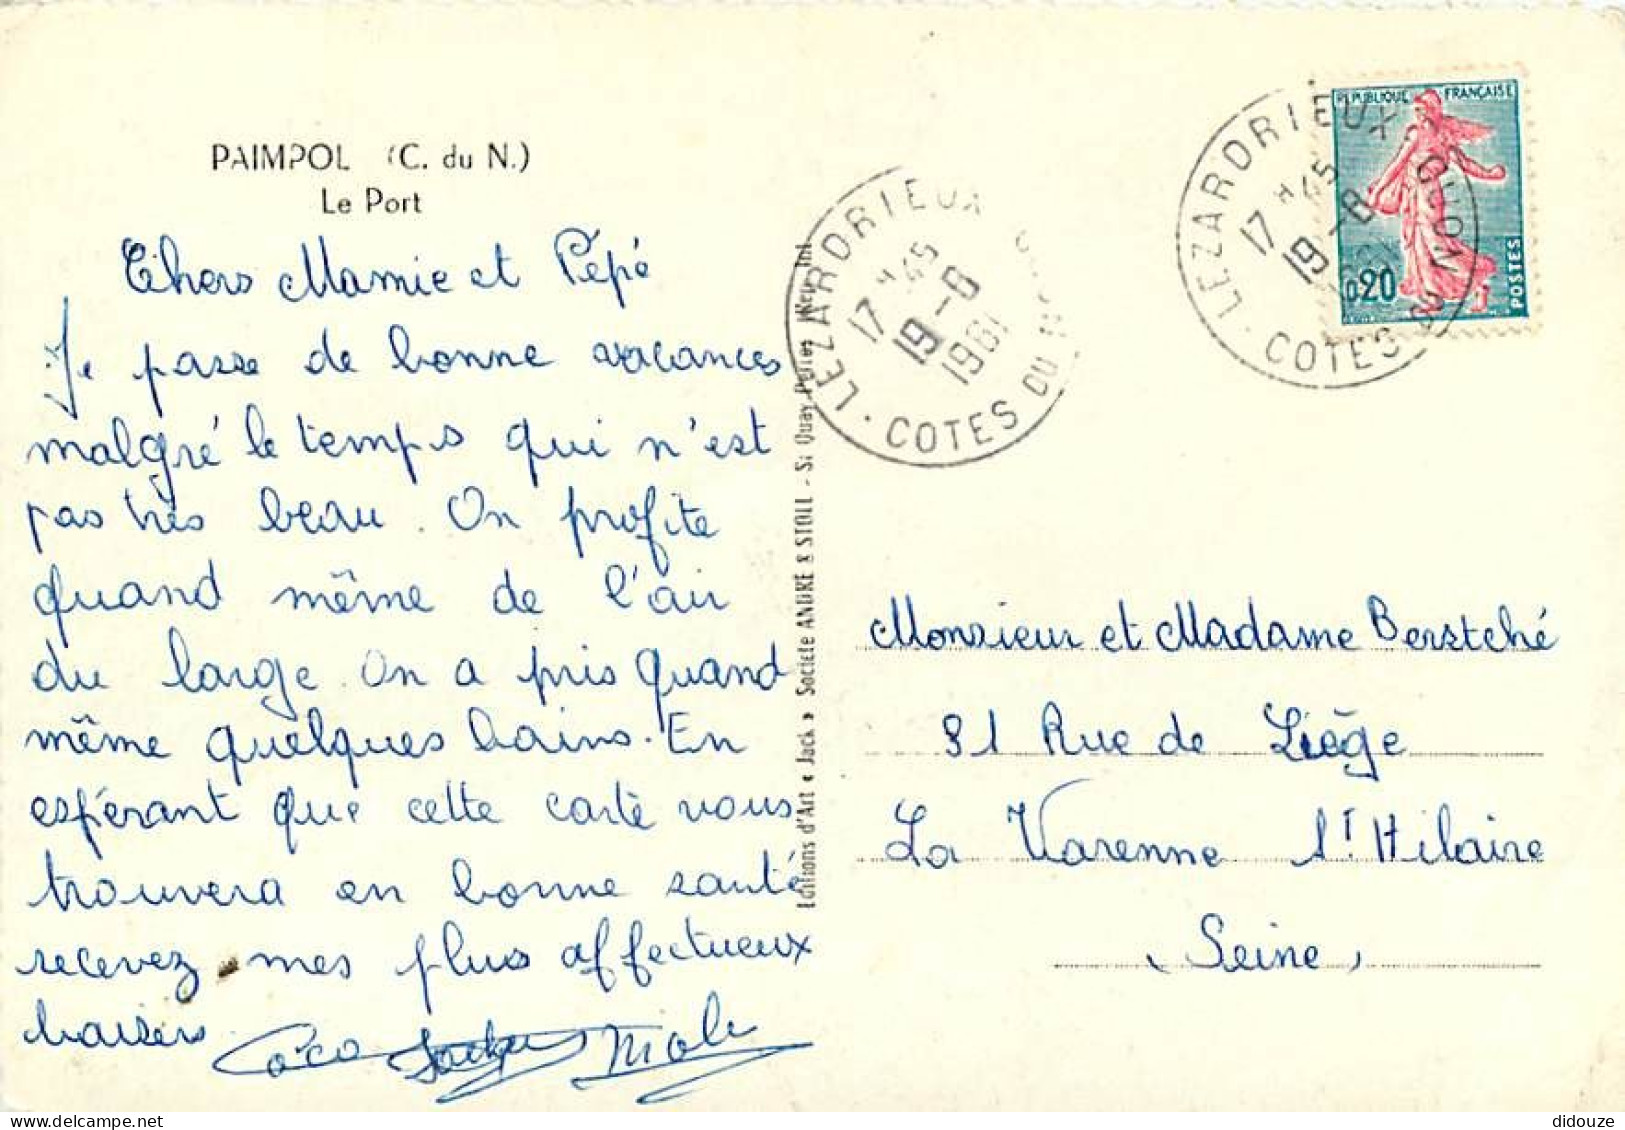 PAIMPOL (C. du N.)
Le Port
Chers Mamie et Pépé
Je passe de bonne vacances
malgré le temps qui n'est
pas très beau. On profite
quand même de l'air
du large. On a pris quand
même quelques bains. En
espérant que cette carte vous
trouvera en bonne santé
recevez mes plus affectueux
baisers.
Coco
Editions d'Art « Jack » Société ANDRÉ & STOLL - St Quay-Port
LEZARDRIEUX
17 H 45
19 - 8
1961
COTES DU
LEZARDRIEUX
17 H 45
19 - 8
COTES DU NORD
REPUBLIQUE FRANÇAISE
0,20
POSTES
Monsieur et Madame Berstché
91 Rue de Liège
La Varenne St Hilaire
(Seine)
didouze